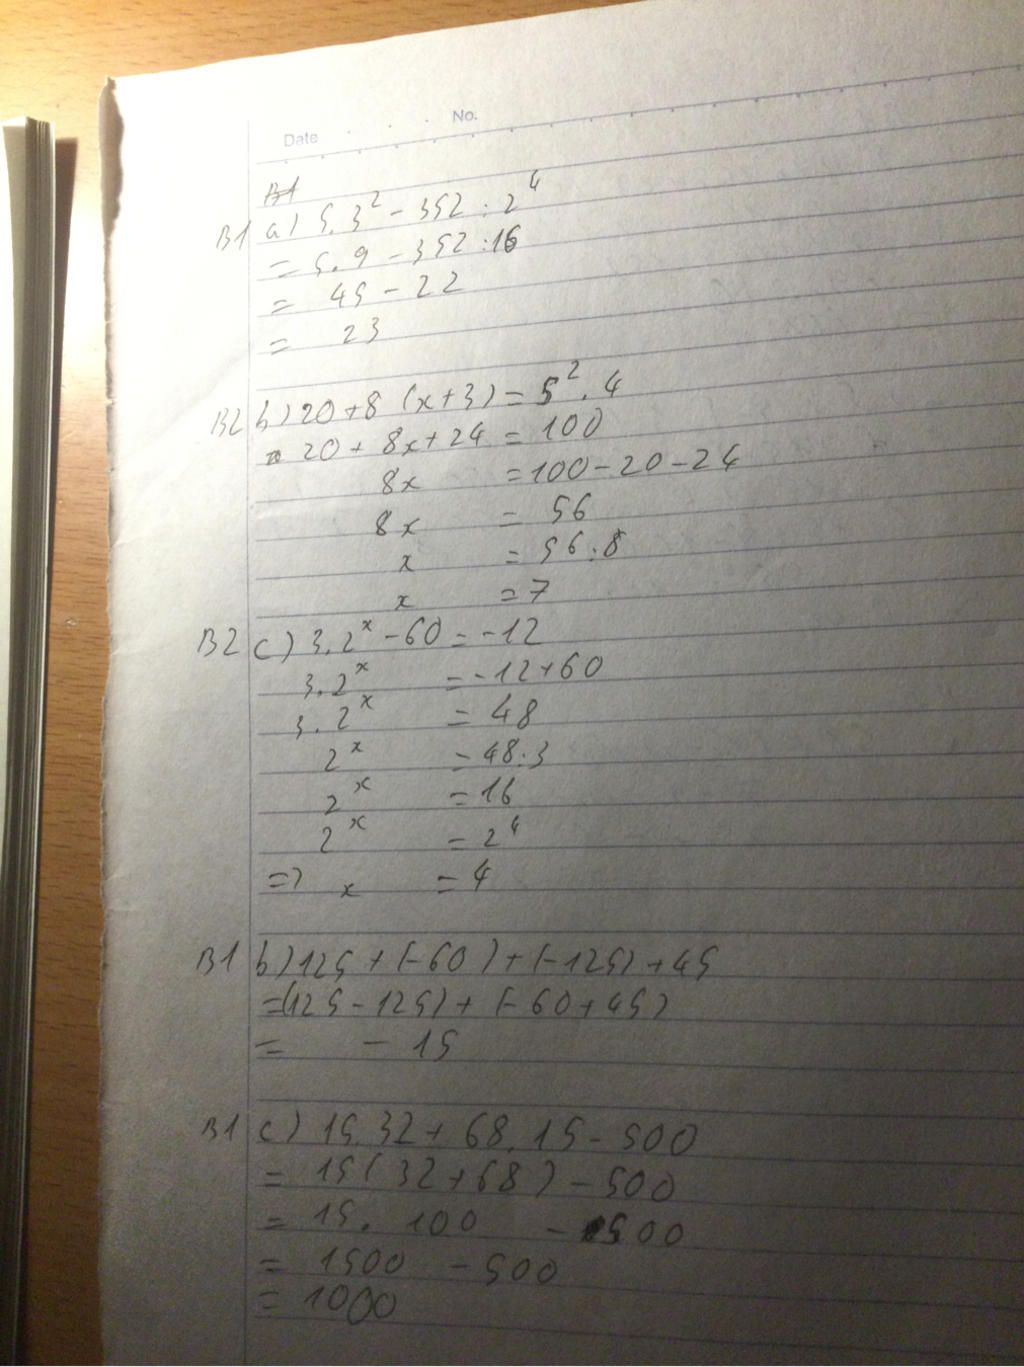 Date No.
B1
B1 a) 5.3² - 352 : 2⁴
= 5.9 - 352 :16
= 45 - 22
= 23
B2 b) 20 + 8 (x+3) = 5² . 4
20 + 8x + 24 = 100
8x = 100 - 20 - 24
8x = 56
x = 56 : 8
x = 7
B2 c) 3.2ˣ - 60 = -12
3.2ˣ = -12 + 60
3.2ˣ = 48
2ˣ = 48:3
2ˣ = 16
2ˣ = 2⁴
=> x = 4
B1 b) 125 + (-60) + (-125) + 45
= (125 - 125) + (-60 + 45)
= - 15
B1 c) 15.32 + 68.15 - 500
= 15 (32 + 68) - 500
= 15. 100 - 500
= 1500 - 500
= 1000